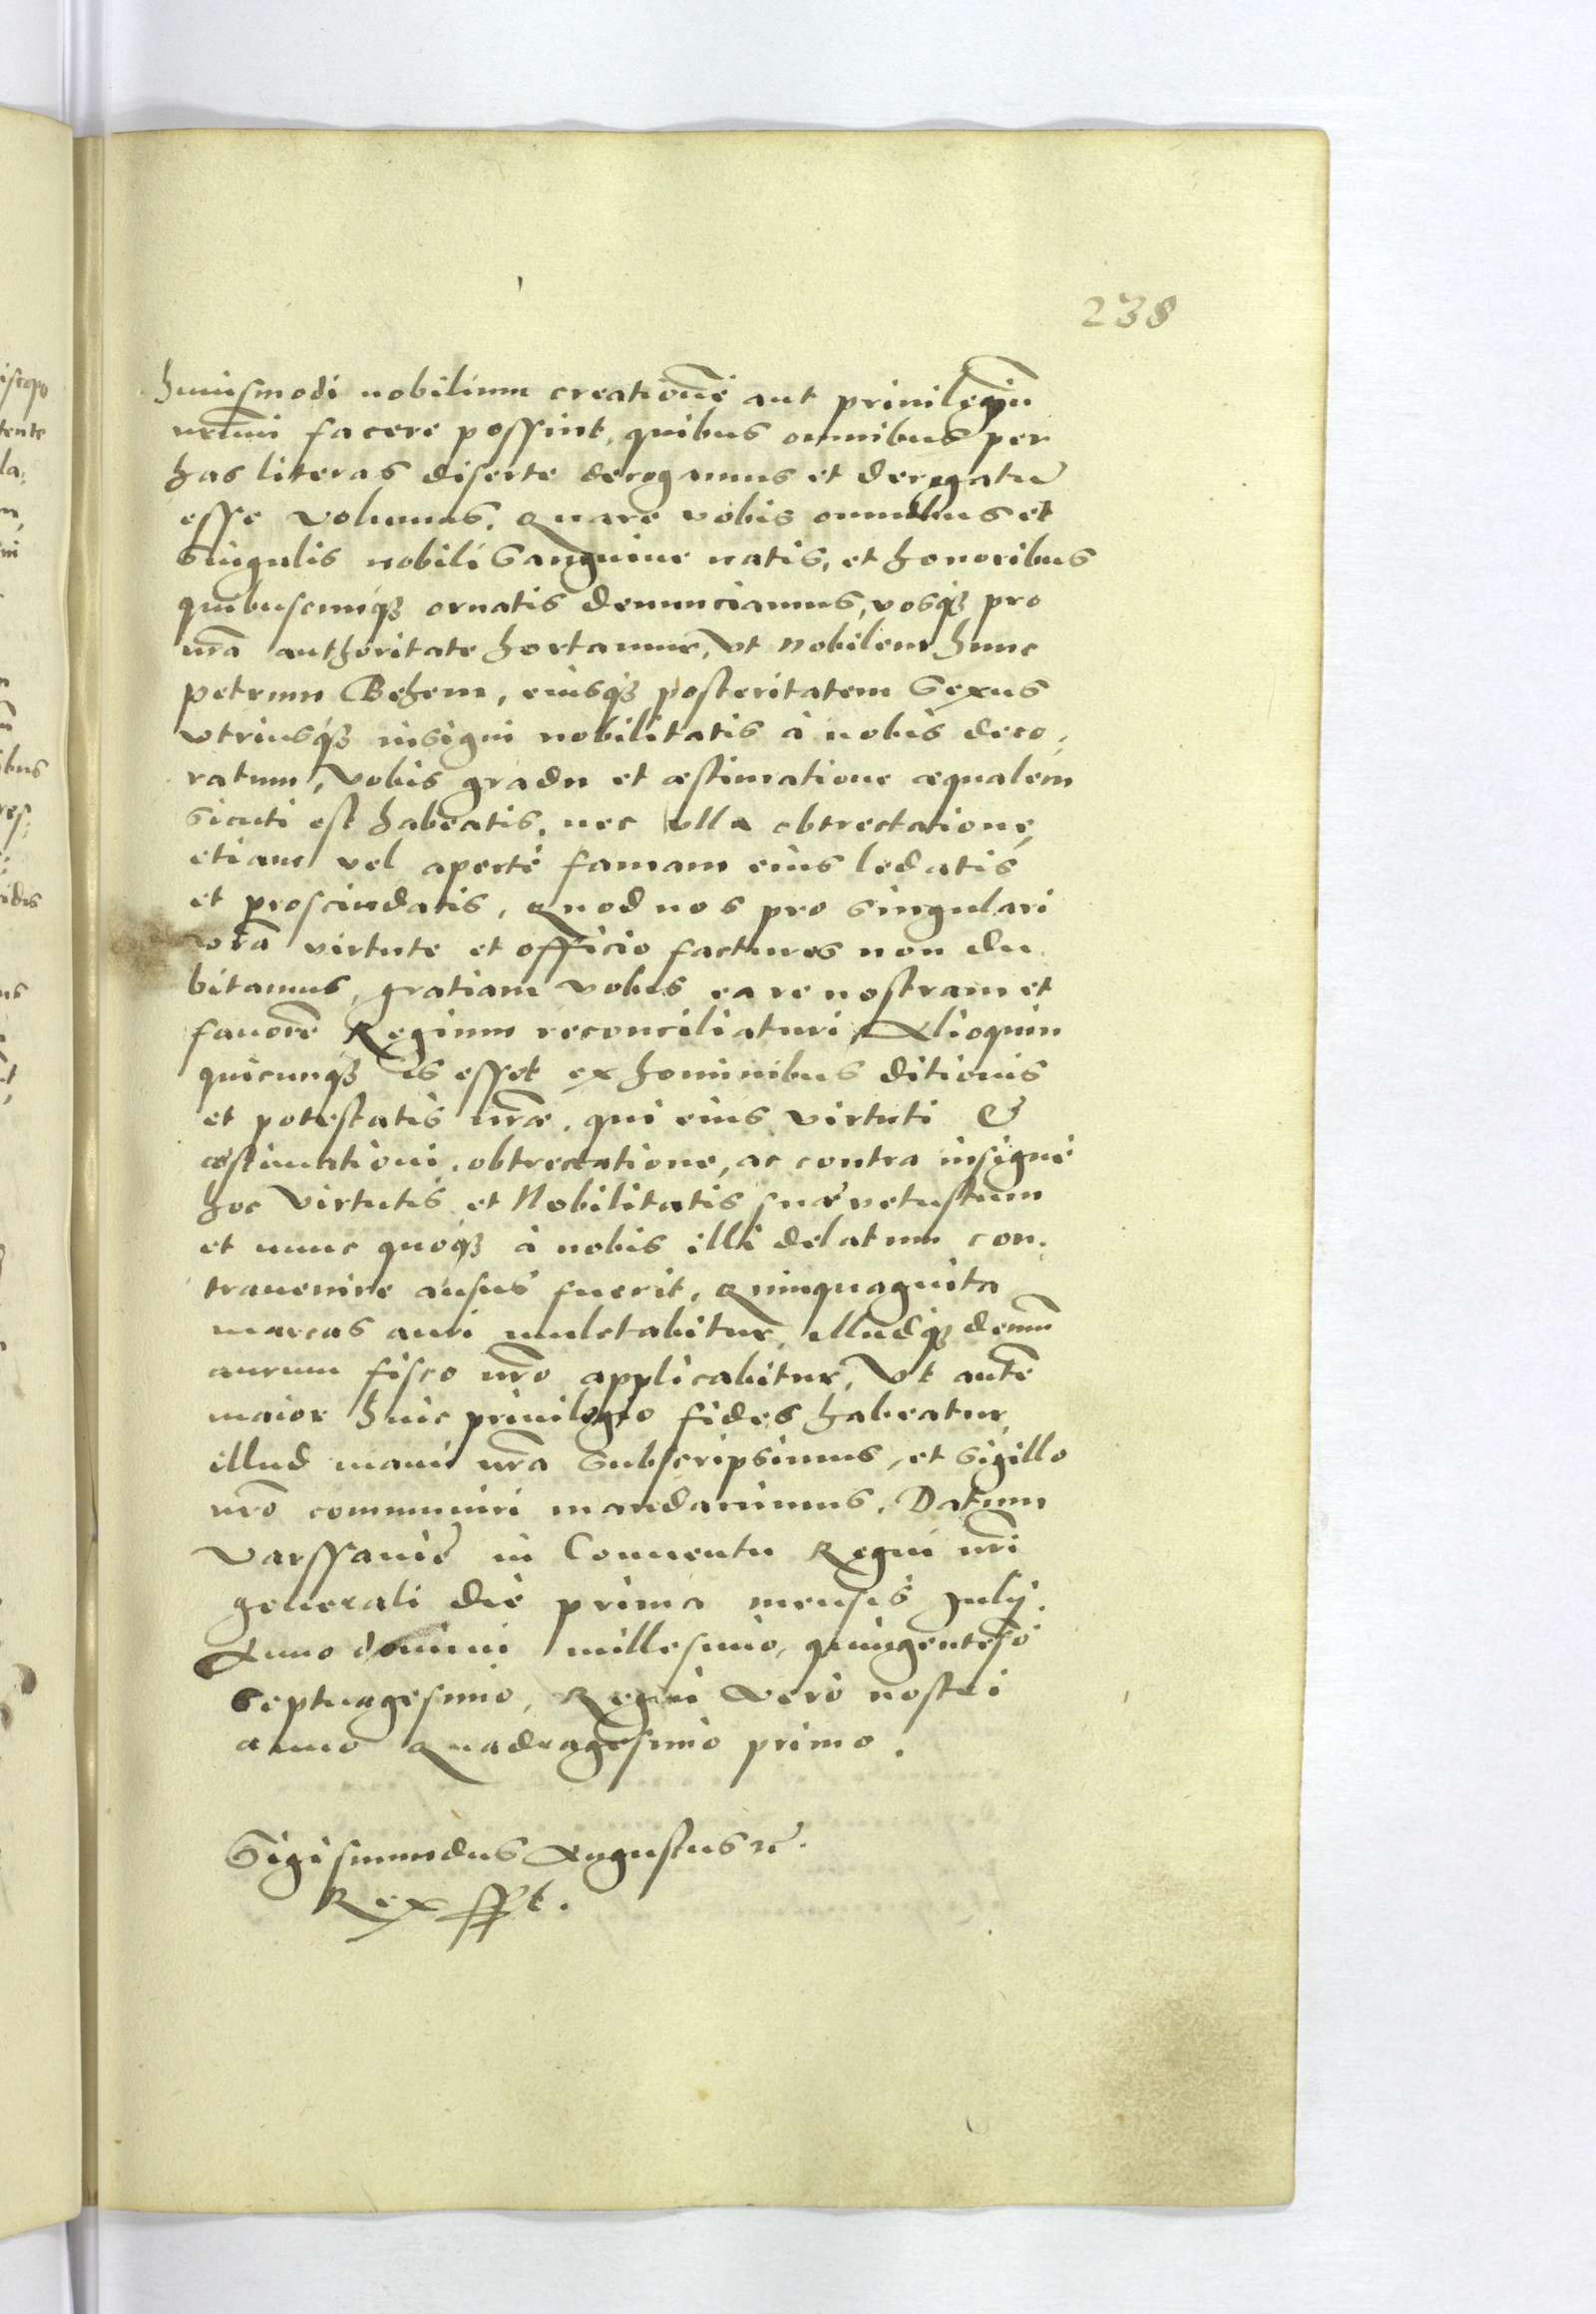 238
huiusmodi nobilium creatione͂ aut priuilegiu͂
facere possint, quibus omnibus per
has literas diserte derogamus et derogatu͂
esse volumus. Quare vobis omnibus et
singulis nobili sanguine natis, et honoribus
quibuscunqꝫ ornatis denunciamus, vosqꝫ pro
nr͂a authoritate hortamur, Vt nobilem hunc
petrum Behem, eiusqꝫ posteritatem sexus
vtriusqꝫ insigni nobilitatis à nobis deco,
ratum, Vobis gradu et æstimatione æqualem
sicuti est habeatis, nec vlla obtrectatione,
etiam vel aperte famam eius ledatis
et proscindatis, Quod nos pro singulari
vr͂a virtute et officio facturos non du
bitamus, gratiam vobis ea re nostram et
fauore͂ Regium reconciliaturi, Alioquin
quicunqꝫ is esset ex hominibus ditionis
et potestatis nr͂æ, qui eius virtuti &
æstimationi, obtrectatione, ac contra insigne
hoc Virtutis et Nobilitatis suæ vetustum
et nunc quoqꝫ à nobis illi delatum con,
trauenire ausus fuerit, Quinquaginta
marcas auri mulctabitur, illudqꝫ demu͂
aurum fisco nr͂o applicabitur, Vt aute͂
maior huic priuilegio fides habeatur,
illud manu nr͂a subscripsimus, et sigillo
nr͂o communiri mandauimus. Datum
Varssauiæ in Conuentu Regni nr͂i
generali die prima mensis Julij.
Anno domini millesimo, quingentesĩo
septuagesimo, Regni vero nostri
anno Quadragesimo primo.
Sigismundus Augustus
Rex sspt.